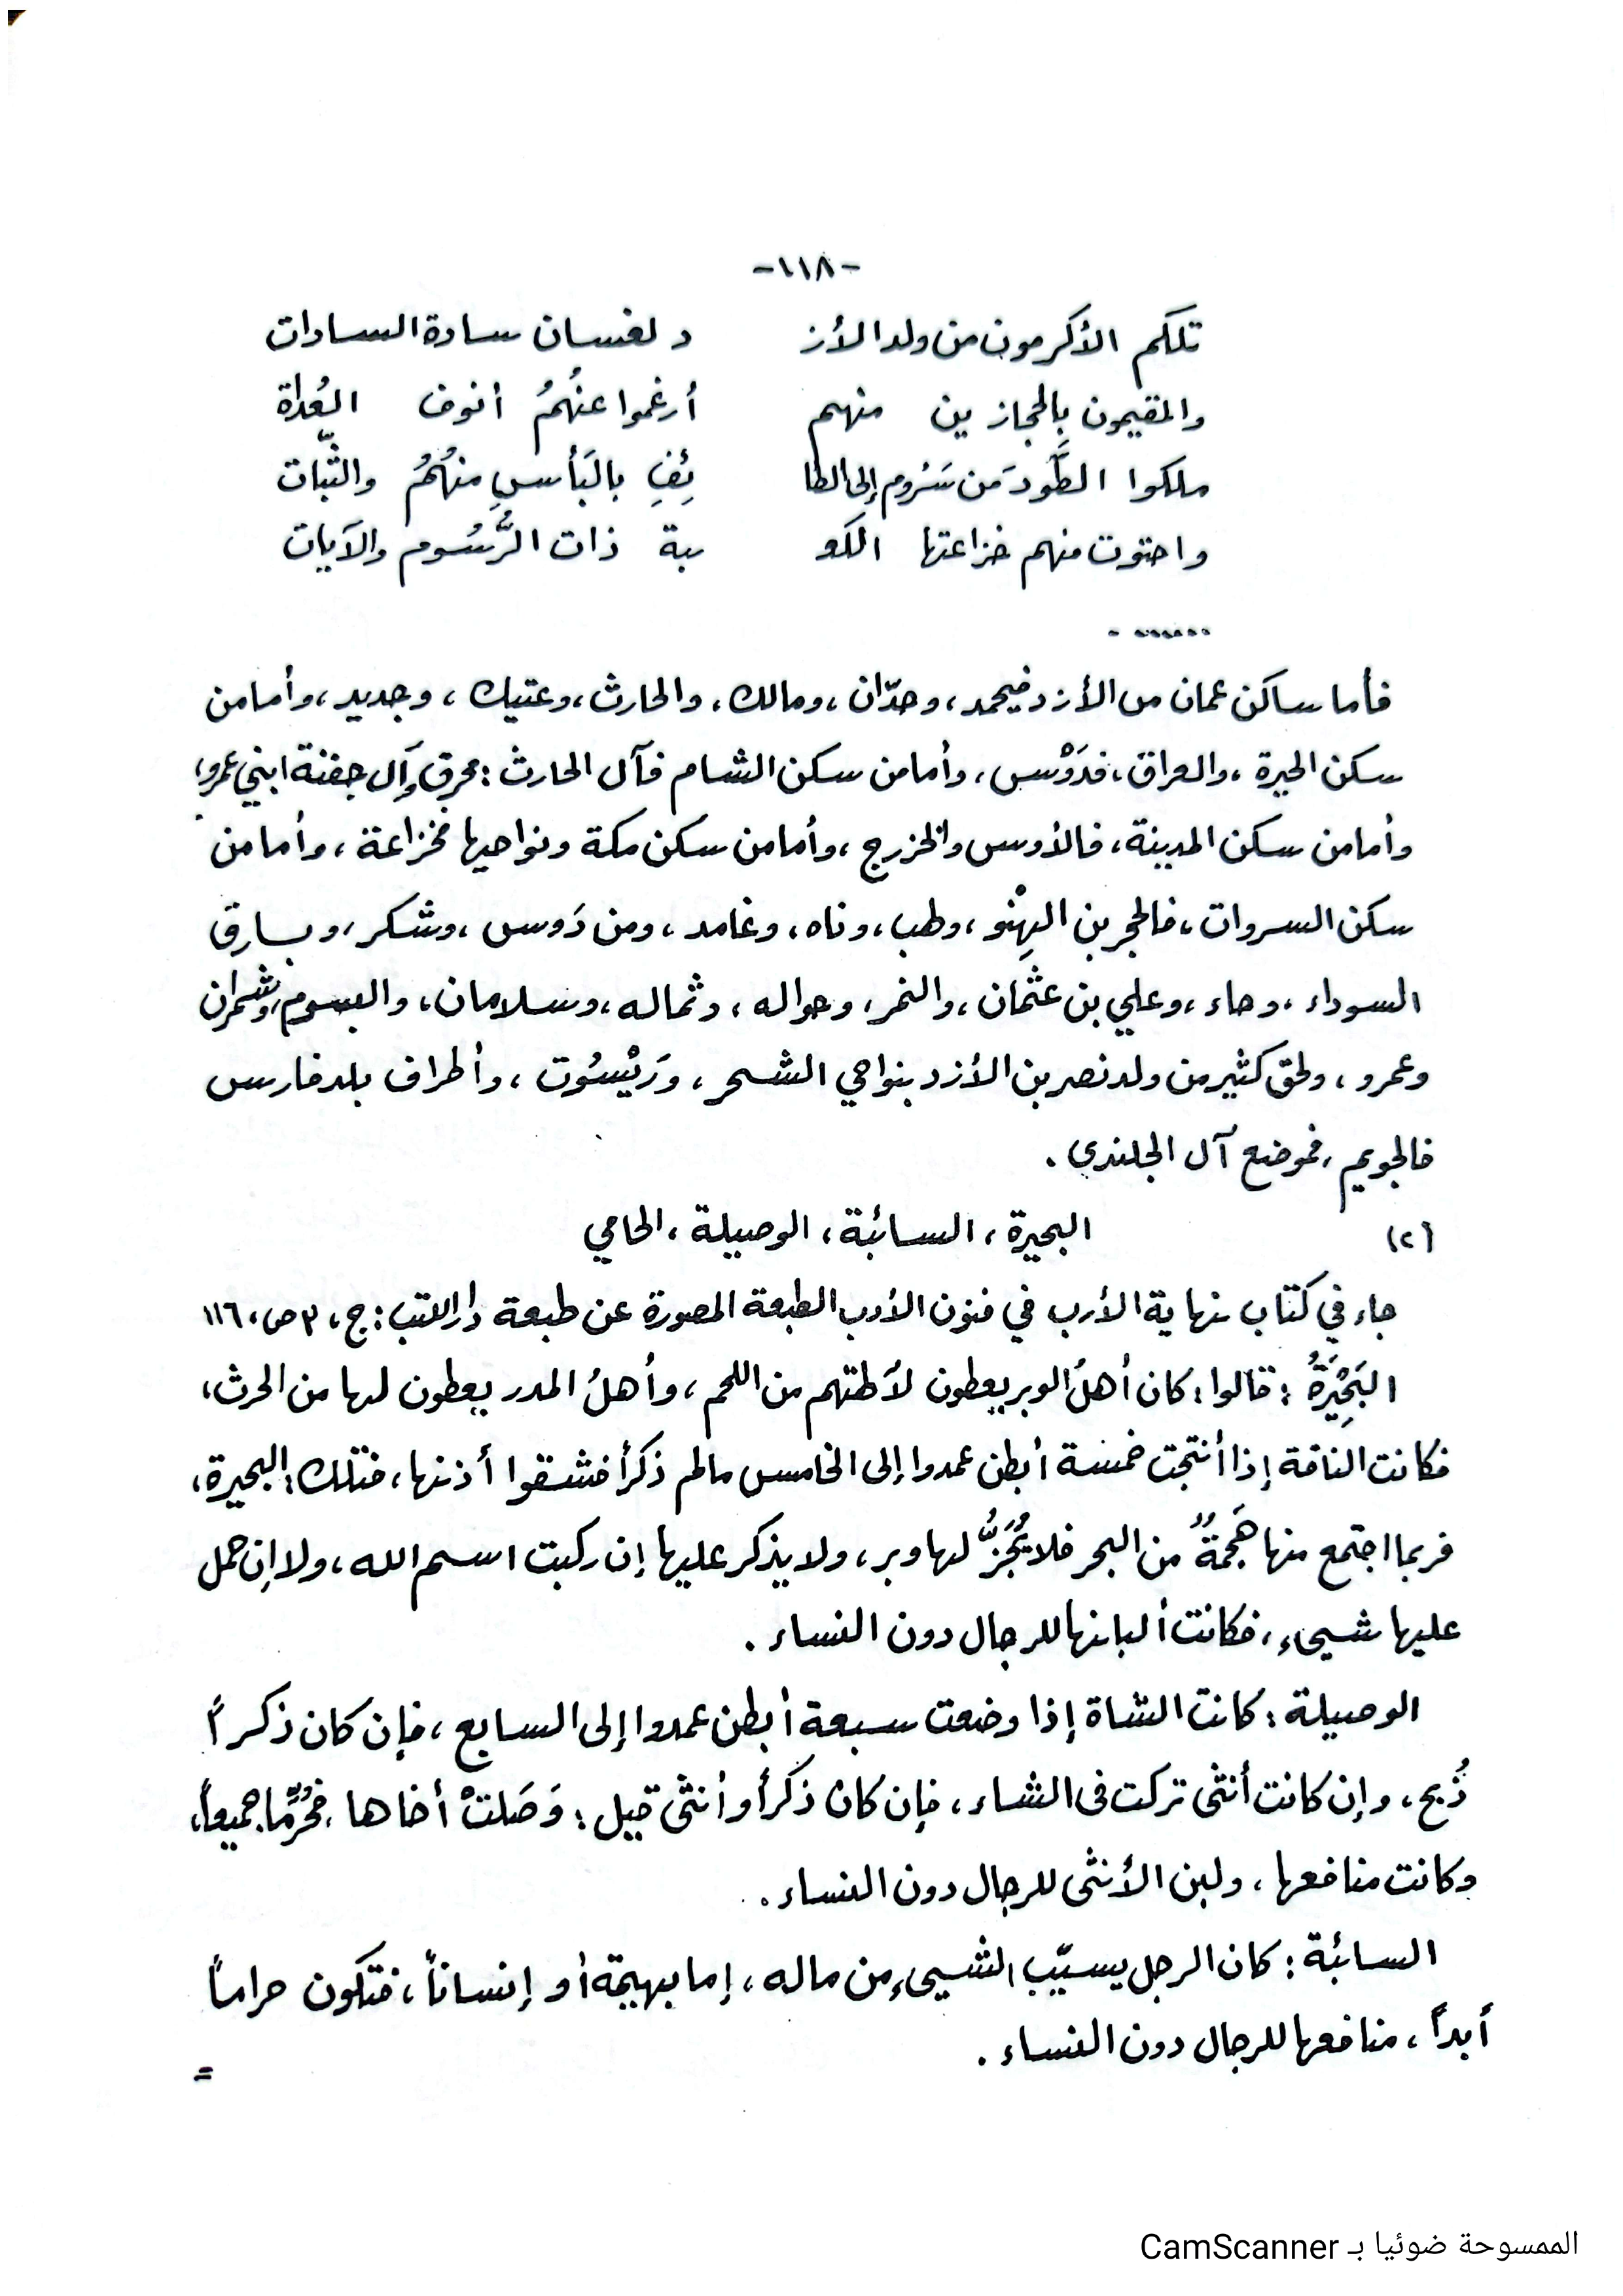 -١١٨-
تلكم الأكرمون من ولد الأز د لغسان سادة السادات
والمقيمون بالحجازين منهم أرغموا عنهُمُ أنوف العُداة
ملكوا الطَّودَ من سَرُوم إلى الطا ئِفِ بالبَأسِ منهُمُ والثّبات
واحتوت منهم خزاعتها الكعـ ـبة ذات الرُّسُوم والآيات
....... -
فأما ساكن عمان من الأزد فيحمد، وحدّان، ومالك، والحارث، وعتيك، وجديد، وأما من
سكن الحيرة، والعراق، فدَوْس، وأما من سكن الشام فآل الحارث: محرق وآل جفنة ابني عمرو،
وأما من سكن المدينة، فالأوس والخزرج، وأما من سكن مكة ونواحيها فخزاعة، وأما من
سكن السروات، فالحجر بن الهِنْو، وطب، وناه، وغامد، ومن دَوس، وشكر، وبارق
السوداء، وحاء، وعلي بن عثمان، والنمر، وحواله، وثماله، وسلامان، والبسوم، وشمران
وعمرو، ولحق كثير من ولد نصر بن الأزد بنواحي الشحر، ورَيْسُوت، وأطراف بلد فارس
فالجويم، فموضع آل الجلندى.
(٢) البحيرة، السائبة، الوصيلة، الحامي
جاء في كتاب نهاية الأرب في فنون الأدب الطبعة المصورة عن طبعة دار الكتب: ج، ٣ ص، ١١٦
البَحِيْرَةُ: قالوا: كان أهلُ الوبر يعطون لآلهتهم من اللحم، وأهلُ المدر يعطون لها من الحرث،
فكانت الناقة إذا أنتجت خمسة أبطن عمدوا إلى الخامس مالم ذكرأ فشقوا أذنها، فتلك: البحيرة،
فربما اجتمع منها هَجمةٌ من البحر فلا يُجَزُّ لها وبر، ولا يذكر عليها إن ركبت اسم الله، ولا إن حمل
عليها شيىء، فكانت ألبانها للرجال دون النساء.
الوصيلة: كانت الشاة إذا وضعت سبعة أبطن عمدوا إلى السابع، فإن كان ذكراً
ذُبح، وإن كانت أنثى تركت في الشاء، فإن كان ذكرأ وأنثى قيل: وَصَلتْ أخاها، فحُرِّما جميعاً،
وكانت منافعها، ولبن الأنثى للرجال دون النساء.
السائبة: كان الرجل يسيّب الشيىء من ماله، إما بهيمة أو إنساناً، فتكون حراماً
أبداً، منافعها للرجال دون النساء.
=
الممسوحة ضوئيا بـ CamScanner